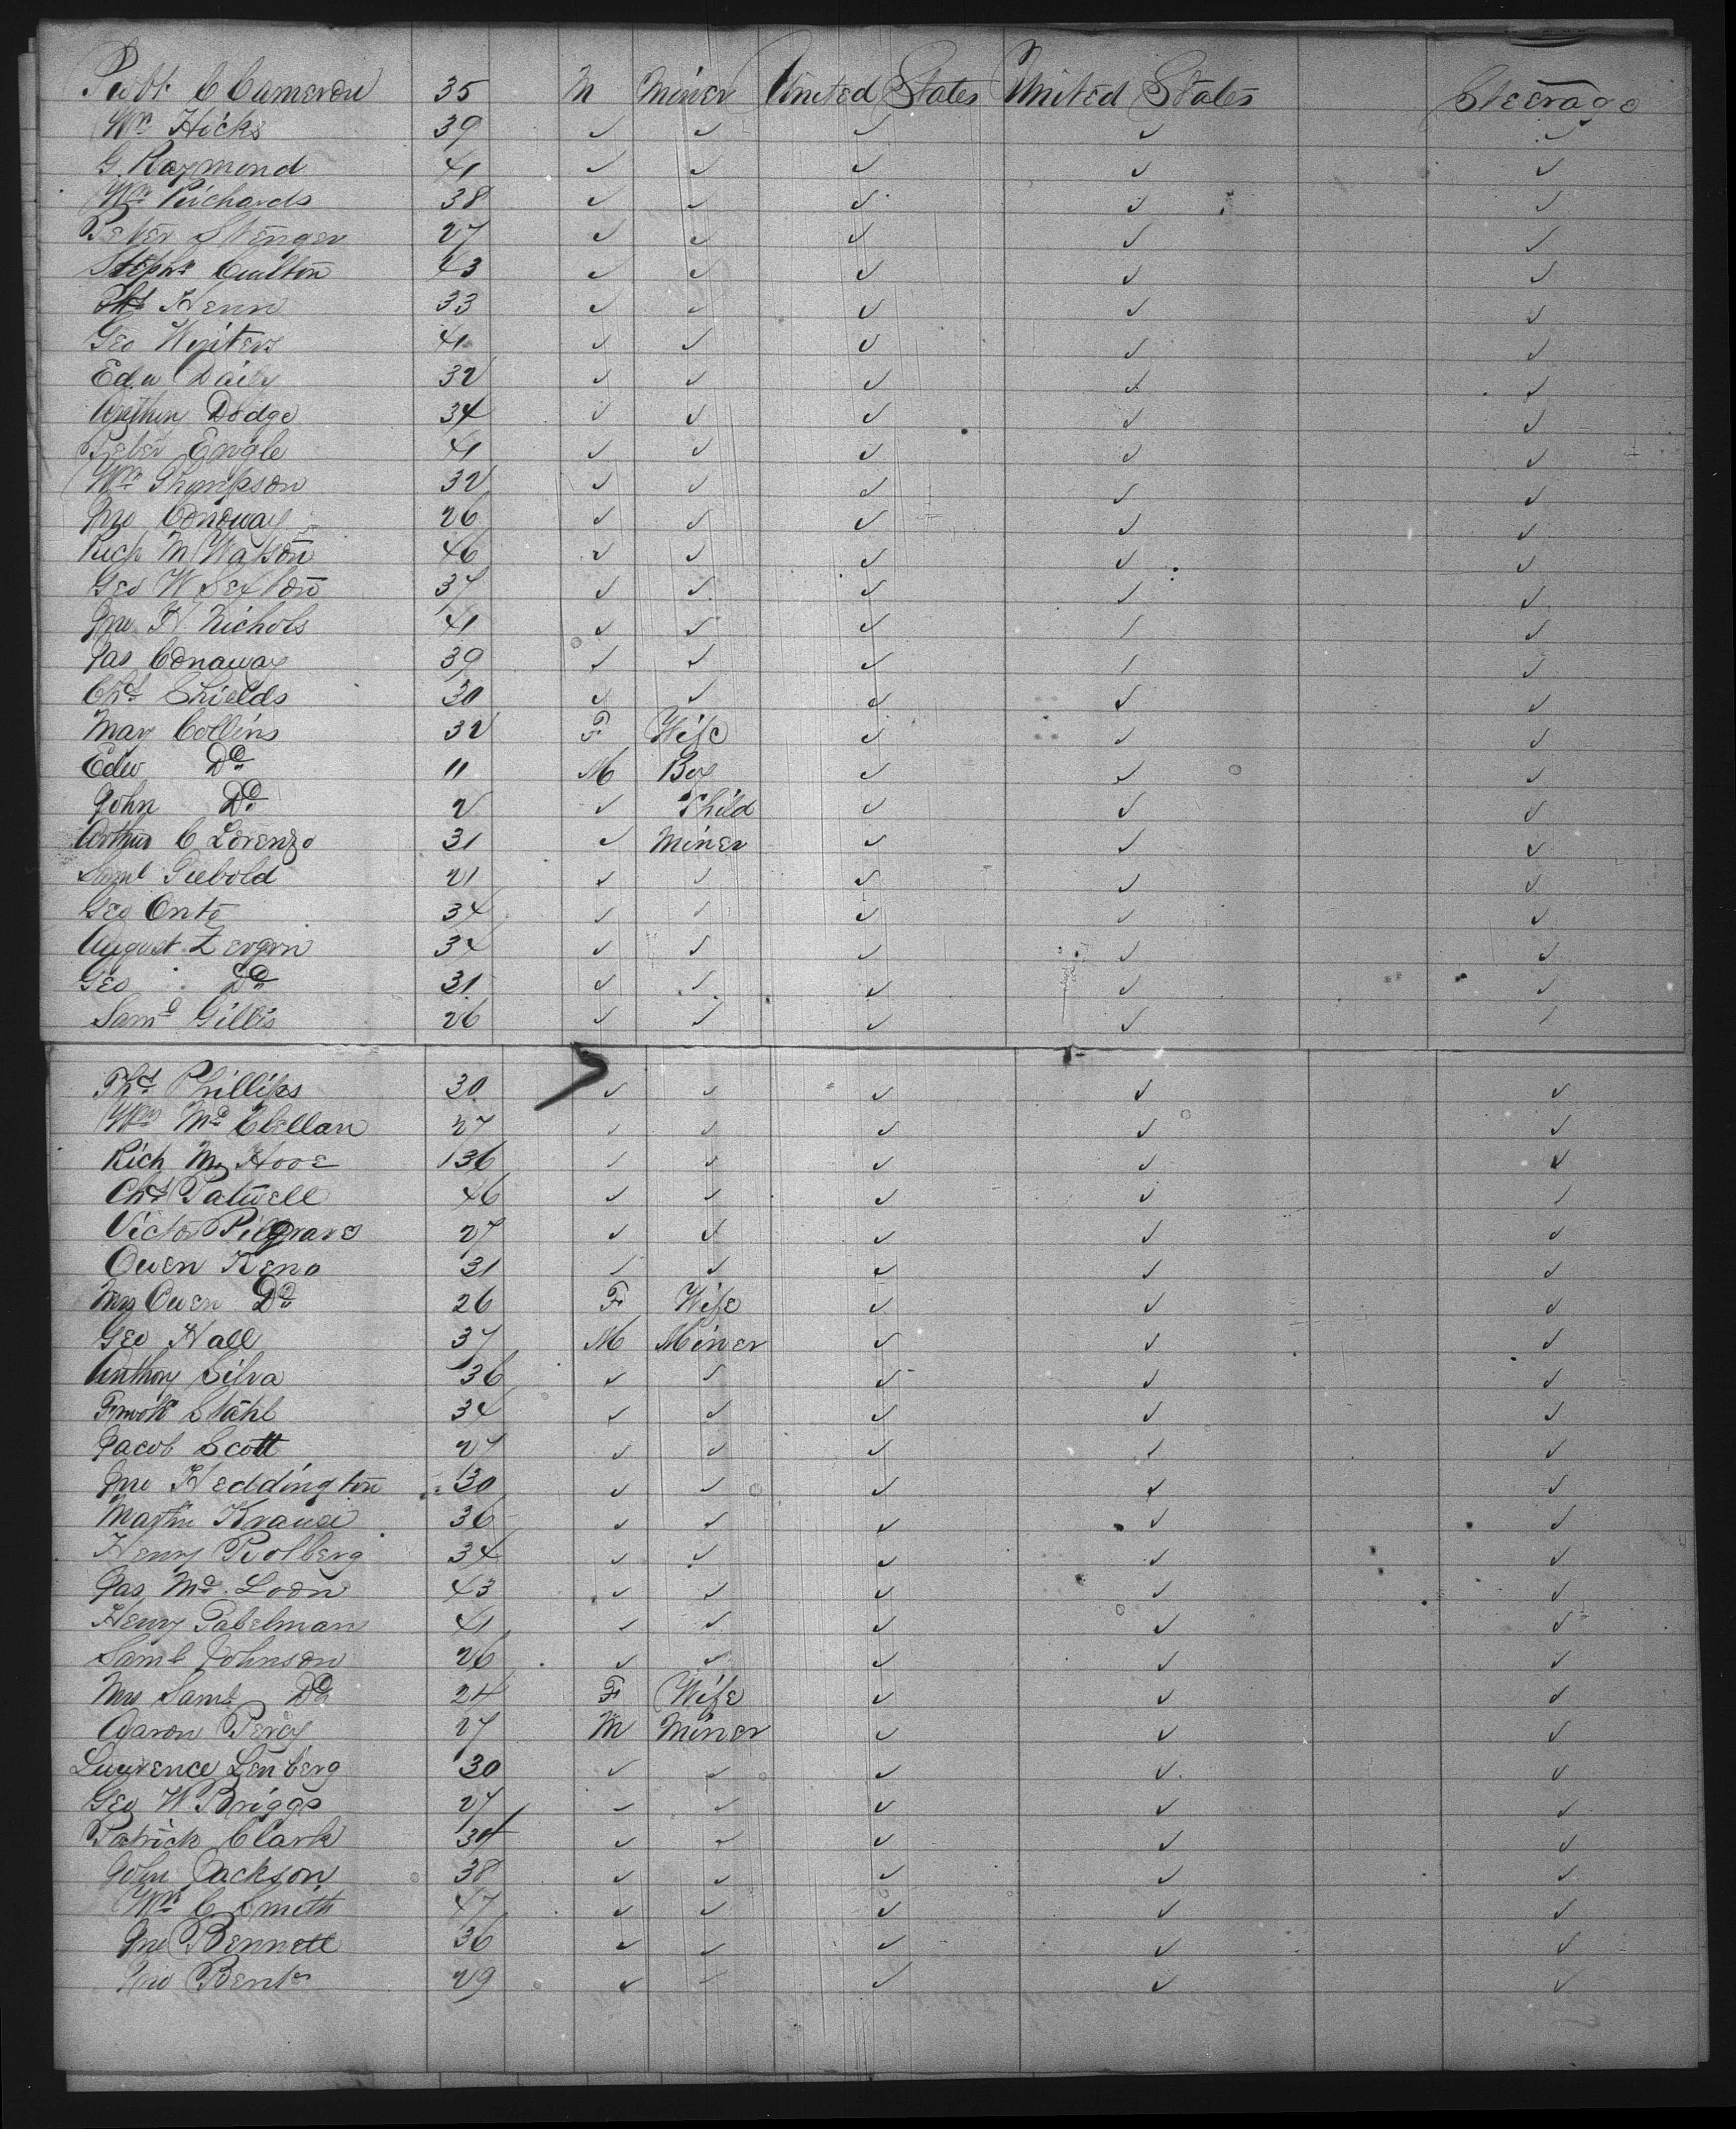 Robt C Cameron 35 M Miner United States United States Steerage
Wm Hicks 39 ✓ ✓ ✓ ✓ ✓
G. Raymond 41 ✓ ✓ ✓ ✓ ✓
Wm Richards 38 ✓ ✓ ✓ ✓ ✓
Peter Stenger 27 ✓ ✓ ✓ ✓ ✓
Stephn Culton 43 ✓ ✓ ✓ ✓ ✓
Henn 33 ✓ ✓ ✓ ✓ ✓
Geo Winters 41 ✓ ✓ ✓ ✓ ✓
Edw Daily 32 ✓ ✓ ✓ ✓ ✓
Dodge 34 ✓ ✓ ✓ ✓ ✓
Peter Engle 41 ✓ ✓ ✓ ✓ ✓
Wm Thompson 32 ✓ ✓ ✓ ✓ ✓
Jno Conoway 26 ✓ ✓ ✓ ✓ ✓
Rich M Watson 46 ✓ ✓ ✓ ✓ ✓
Geo W Sexton 37 ✓ ✓ ✓ ✓ ✓
Jno H Nichols 41 ✓ ✓ ✓ ✓ ✓
Jas Conaway 39 ✓ ✓ ✓ ✓ ✓
Chs Shields 30 ✓ ✓ ✓ ✓ ✓
Mary Collins 32 F Wife ✓ ✓ ✓
Edw Do 11 M Boy ✓ ✓ ✓
John Do 2 ✓ Child ✓ ✓ ✓
Arthur C Lorenzo 31 ✓ Miner ✓ ✓ ✓
Saml Giebold 21 ✓ ✓ ✓ ✓ ✓
Geo Onto 34 ✓ ✓ ✓ ✓ ✓
August Zergon 34 ✓ ✓ ✓ ✓ ✓
Geo Do 31 ✓ ✓ ✓ ✓ ✓
Saml Gillis 26 ✓ ✓ ✓ ✓ ✓
Ths Phillips 30 ✓ ✓ ✓ ✓ ✓
Wm Mc Clellan 27 ✓ ✓ ✓ ✓ ✓
Rich M Hooe 36 ✓ ✓ ✓ ✓ ✓
Chs Patwell 46 ✓ ✓ ✓ ✓ ✓
Victor Pilgrave 27 ✓ ✓ ✓ ✓ ✓
Owen Keno 31 ✓ ✓ ✓ ✓ ✓
Mrs Owen Do 26 F Wife ✓ ✓ ✓
Geo Hall 37 M Miner ✓ ✓ ✓
Anthony Silva 36 ✓ ✓ ✓ ✓ ✓
Stahl 34 ✓ ✓ ✓ ✓ ✓
Jacob Scott 27 ✓ ✓ ✓ ✓ ✓
Jno Heddington 30 ✓ ✓ ✓ ✓ ✓
Martin Krause 36 ✓ ✓ ✓ ✓ ✓
Henry Rolberg 34 ✓ ✓ ✓ ✓ ✓
Jas Mc Loon 43 ✓ ✓ ✓ ✓ ✓
Henry Pabelman 41 ✓ ✓ ✓ ✓ ✓
Saml Johnson 26 ✓ ✓ ✓ ✓ ✓
Mrs Saml Do 24 F Wife ✓ ✓ ✓
Aaron Percy 27 M Miner ✓ ✓ ✓
Lawrence Lenberg 30 ✓ ✓ ✓ ✓ ✓
Geo W Briggs 27 ✓ ✓ ✓ ✓ ✓
Patrick Clark 34 ✓ ✓ ✓ ✓ ✓
John Jackson 38 ✓ ✓ ✓ ✓ ✓
Wm C Smith 47 ✓ ✓ ✓ ✓ ✓
Jno Bennett 36 ✓ ✓ ✓ ✓ ✓
Bent 29 ✓ ✓ ✓ ✓ ✓